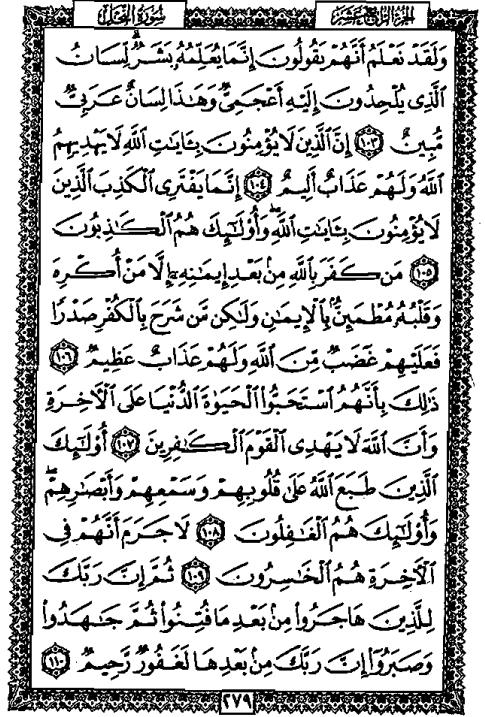 الجزء الرابع عشر
سورة النحل
وَلَقَدْ نَعْلَمُ أَنَّهُمْ يَقُولُونَ إِنَّمَا يُعَلِّمُهُۥ بَشَرٌ ۗ لِّسَانُ
ٱلَّذِى يُلْحِدُونَ إِلَيْهِ أَعْجَمِىٌّ وَهَـٰذَا لِسَانٌ عَرَبِىٌّ
مُّبِينٌ ﴿١٠٣﴾ إِنَّ ٱلَّذِينَ لَا يُؤْمِنُونَ بِـَٔايَـٰتِ ٱللَّهِ لَا يَهْدِيهِمُ
ٱللَّهُ وَلَهُمْ عَذَابٌ أَلِيمٌ ﴿١٠٤﴾ إِنَّمَا يَفْتَرِى ٱلْكَذِبَ ٱلَّذِينَ
لَا يُؤْمِنُونَ بِـَٔايَـٰتِ ٱللَّهِ ۖ وَأُو۟لَـٰٓئِكَ هُمُ ٱلْكَـٰذِبُونَ
﴿١٠٥﴾ مَن كَفَرَ بِٱللَّهِ مِنۢ بَعْدِ إِيمَـٰنِهِۦٓ إِلَّا مَنْ أُكْرِهَ
وَقَلْبُهُۥ مُطْمَئِنٌّۢ بِٱلْإِيمَـٰنِ وَلَـٰكِن مَّن شَرَحَ بِٱلْكُفْرِ صَدْرًا
فَعَلَيْهِمْ غَضَبٌ مِّنَ ٱللَّهِ وَلَهُمْ عَذَابٌ عَظِيمٌ ﴿١٠٦﴾
ذَٰلِكَ بِأَنَّهُمُ ٱسْتَحَبُّوا۟ ٱلْحَيَوٰةَ ٱلدُّنْيَا عَلَى ٱلْـَٔاخِرَةِ
وَأَنَّ ٱللَّهَ لَا يَهْدِى ٱلْقَوْمَ ٱلْكَـٰفِرِينَ ﴿١٠٧﴾ أُو۟لَـٰٓئِكَ
ٱلَّذِينَ طَبَعَ ٱللَّهُ عَلَىٰ قُلُوبِهِمْ وَسَمْعِهِمْ وَأَبْصَـٰرِهِمْ ۖ
وَأُو۟لَـٰٓئِكَ هُمُ ٱلْغَـٰفِلُونَ ﴿١٠٨﴾ لَا جَرَمَ أَنَّهُمْ فِى
ٱلْـَٔاخِرَةِ هُمُ ٱلْخَـٰسِرُونَ ﴿١٠٩﴾ ثُمَّ إِنَّ رَبَّكَ
لِلَّذِينَ هَاجَرُوا۟ مِنۢ بَعْدِ مَا فُتِنُوا۟ ثُمَّ جَـٰهَدُوا۟
وَصَبَرُوٓا۟ إِنَّ رَبَّكَ مِنۢ بَعْدِهَا لَغَفُورٌ رَّحِيمٌ ﴿١١٠﴾
٢٧٩